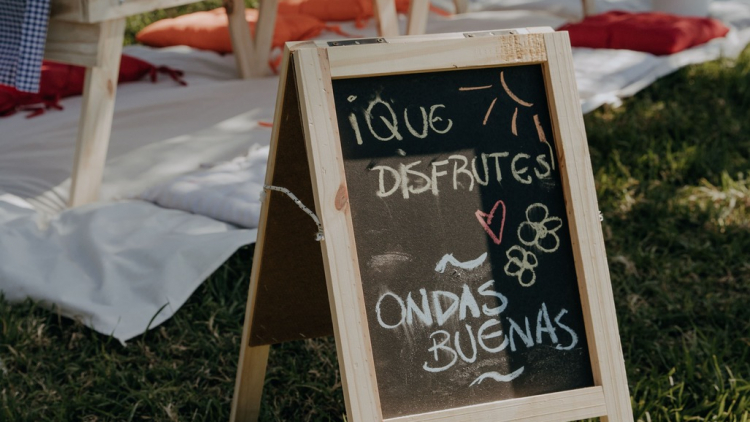 ¡QUE
DISFRUTES!
ONDAS
BUENAS